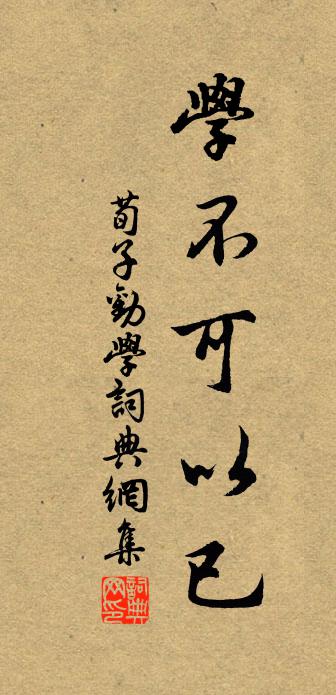 學不可以已
荀子勸學詞典網集
詞典网印